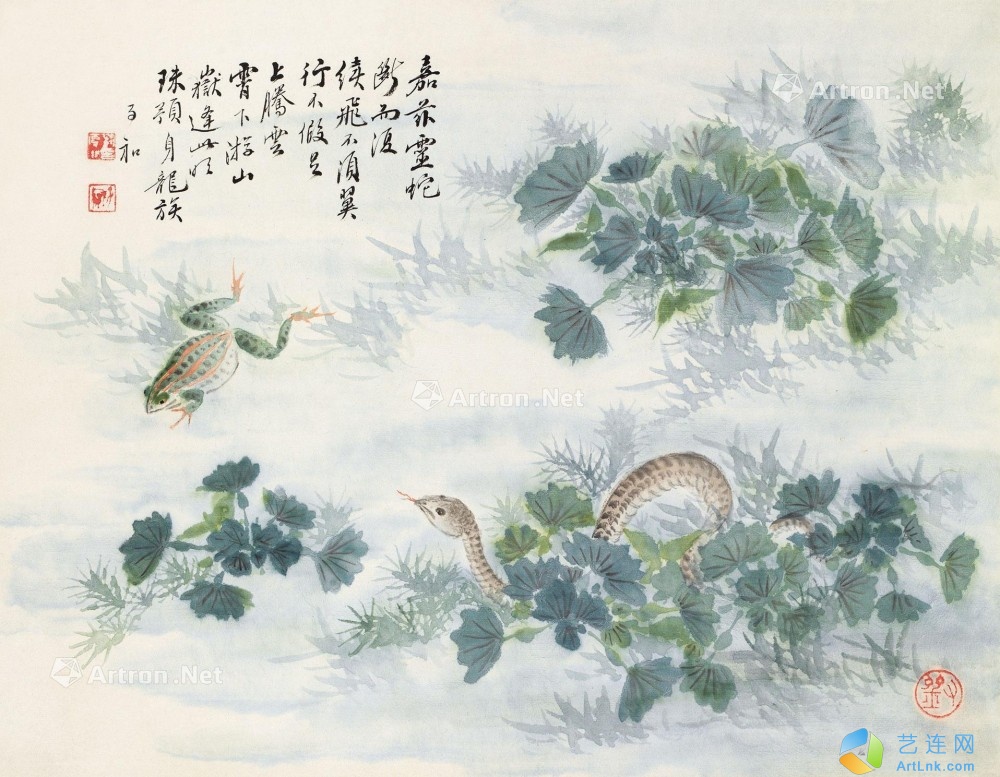 嘉茲靈蛇
斷而復
續飛不須翼
行不假足
上騰雲
霄下游山
嶽逢此明
珠預身龍族
子和
Artron.Net
Artron.Net
Artron.Net
艺连网
ArtLnk.com